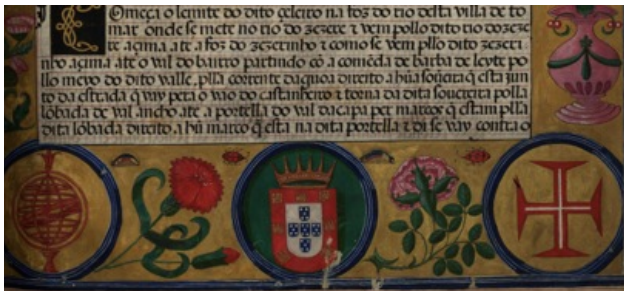 Omeça o lemite do dito çeleiro na foz do rio desta villa de to
mar onde se mete no rio do zezere ⁊ vem pollo dito rio do zeze
re açima ate a foz do zezerinho ⁊ como se vem pllo dito zezeri
nho açima ate o val do bairro partindo cõ a comẽda de barba de leyte po
llo meyo do dito valle, plla corrente dagoa direito a hũa soueira q̃ esta jun
to da estrada q̃ vay pera o vao do castanheiro ⁊ torna da dita souereira polla
lõbada de val ancho ate a portella do val da capa per marcos q̃ estam plla
dita lõbada direito a hũ marco q̃ esta na dita portella ⁊ di se vay contra o